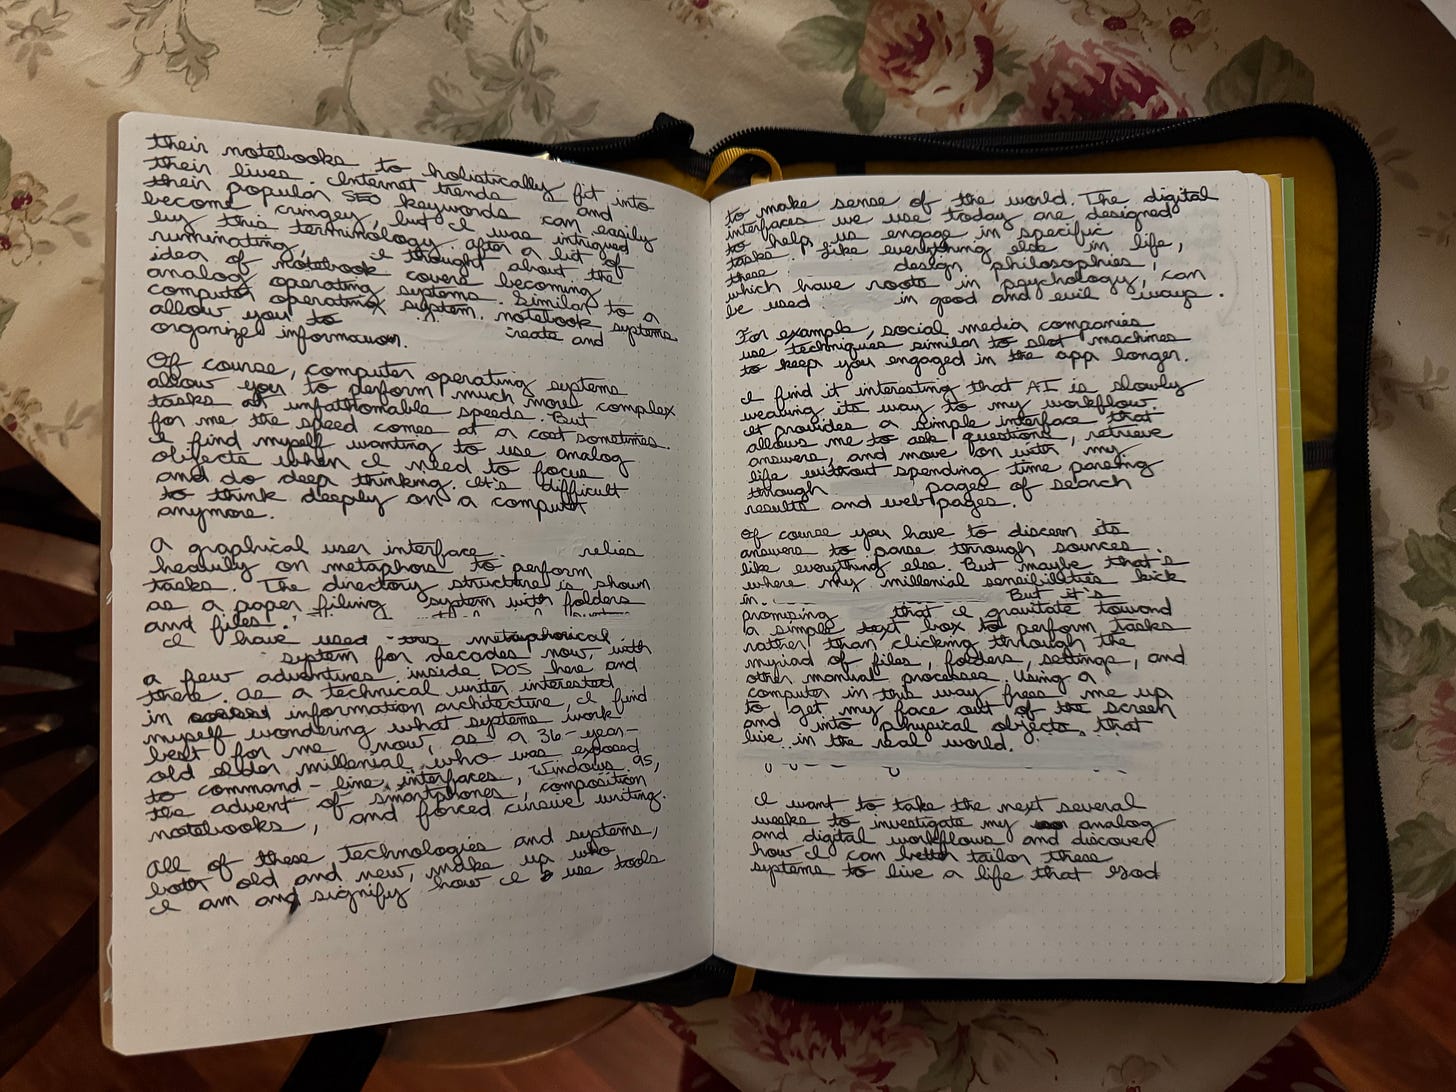 their notebooks to holistically fit into
their lives. Internet trends and
their popular SEO keywords can easily
become cringey, but I was intrigued
by this terminology. After a bit of
ruminating, I thought about the
idea of notebook covers becoming
analog operating systems. Similar to a
computer operating system, notebook systems
allow you to create and
organize information.
Of course, computer operating systems
allow you to perform much more complex
tasks at unfathomable speeds. But
for me the speed comes at a cost sometimes.
I find myself wanting to use analog
objects when I need to focus
and do deep thinking. It's difficult
to think deeply on a computer
anymore.
A graphical user interface relies
heavily on metaphors to perform
tasks. The directory structure is shown
as a paper filing system with folders
and files.
I have used this metaphorical
system for decades now, with
a few adventures inside DOS here and
there. As a technical writer interested
in information architecture, I find
myself wondering what systems work
best for me now, as a 36-year-
old older millenial who was exposed
to command-line interfaces, Windows 95,
the advent of smartphones, composition
notebooks, and forced cursive writing.
All of these technologies and systems,
both old and new, make up who
I am and signify how I use tools
to make sense of the world. The digital
interfaces we use today are designed
to help us engage in specific
tasks. Like everything else in life,
these design philosophies,
which have roots in psychology, can
be used in good and evil ways.
For example, social media companies
use techniques similar to slot machines
to keep you engaged in the app longer.
I find it interesting that AI is slowly
weaving its way to my workflow.
It provides a simple interface that
allows me to ask questions, retrieve
answers, and move on with my
life without spending time parsing
through pages of search
results and web pages.
Of course you have to discern its
answers to parse through sources
like everything else. But maybe that's
where my millenial sensibilities kick
in. But it's
promising that I gravitate toward
a simple text box to perform tasks
rather than clicking through the
myriad of files, folders, settings, and
other manual processes. Using a
computer in this way frees me up
to get my face out of the screen
and into physical objects that
live in the real world.
I want to take the next several
weeks to investigate my analog
and digital workflows and discover
how I can better tailor these
systems to live a life that God